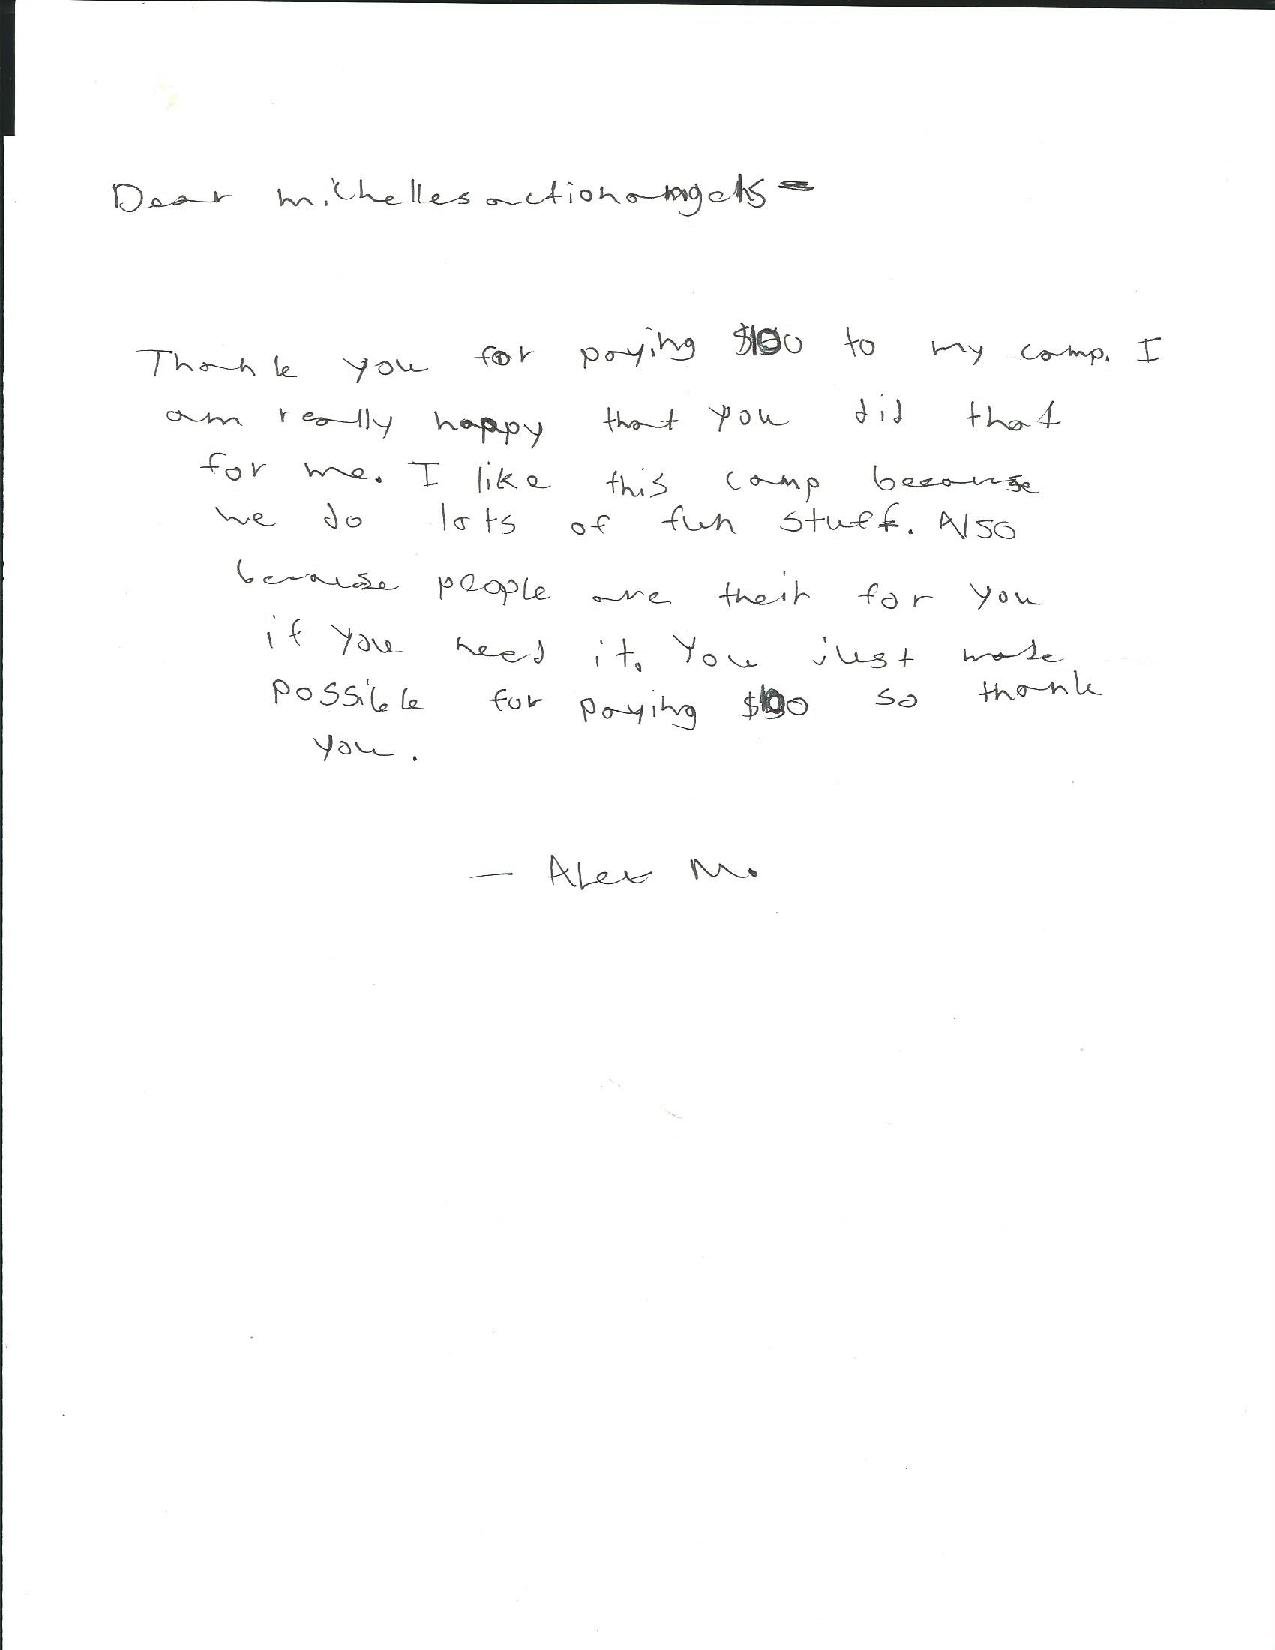 Dear michellesactionangels
Thank you for paying $100 to my camp. I
am really happy that you did that
for me. I like this camp because
we do lots of fun stuff. Also
because people are their for you
if you need it. You just made
possible for paying $100 so thank
you.
— Alex M.